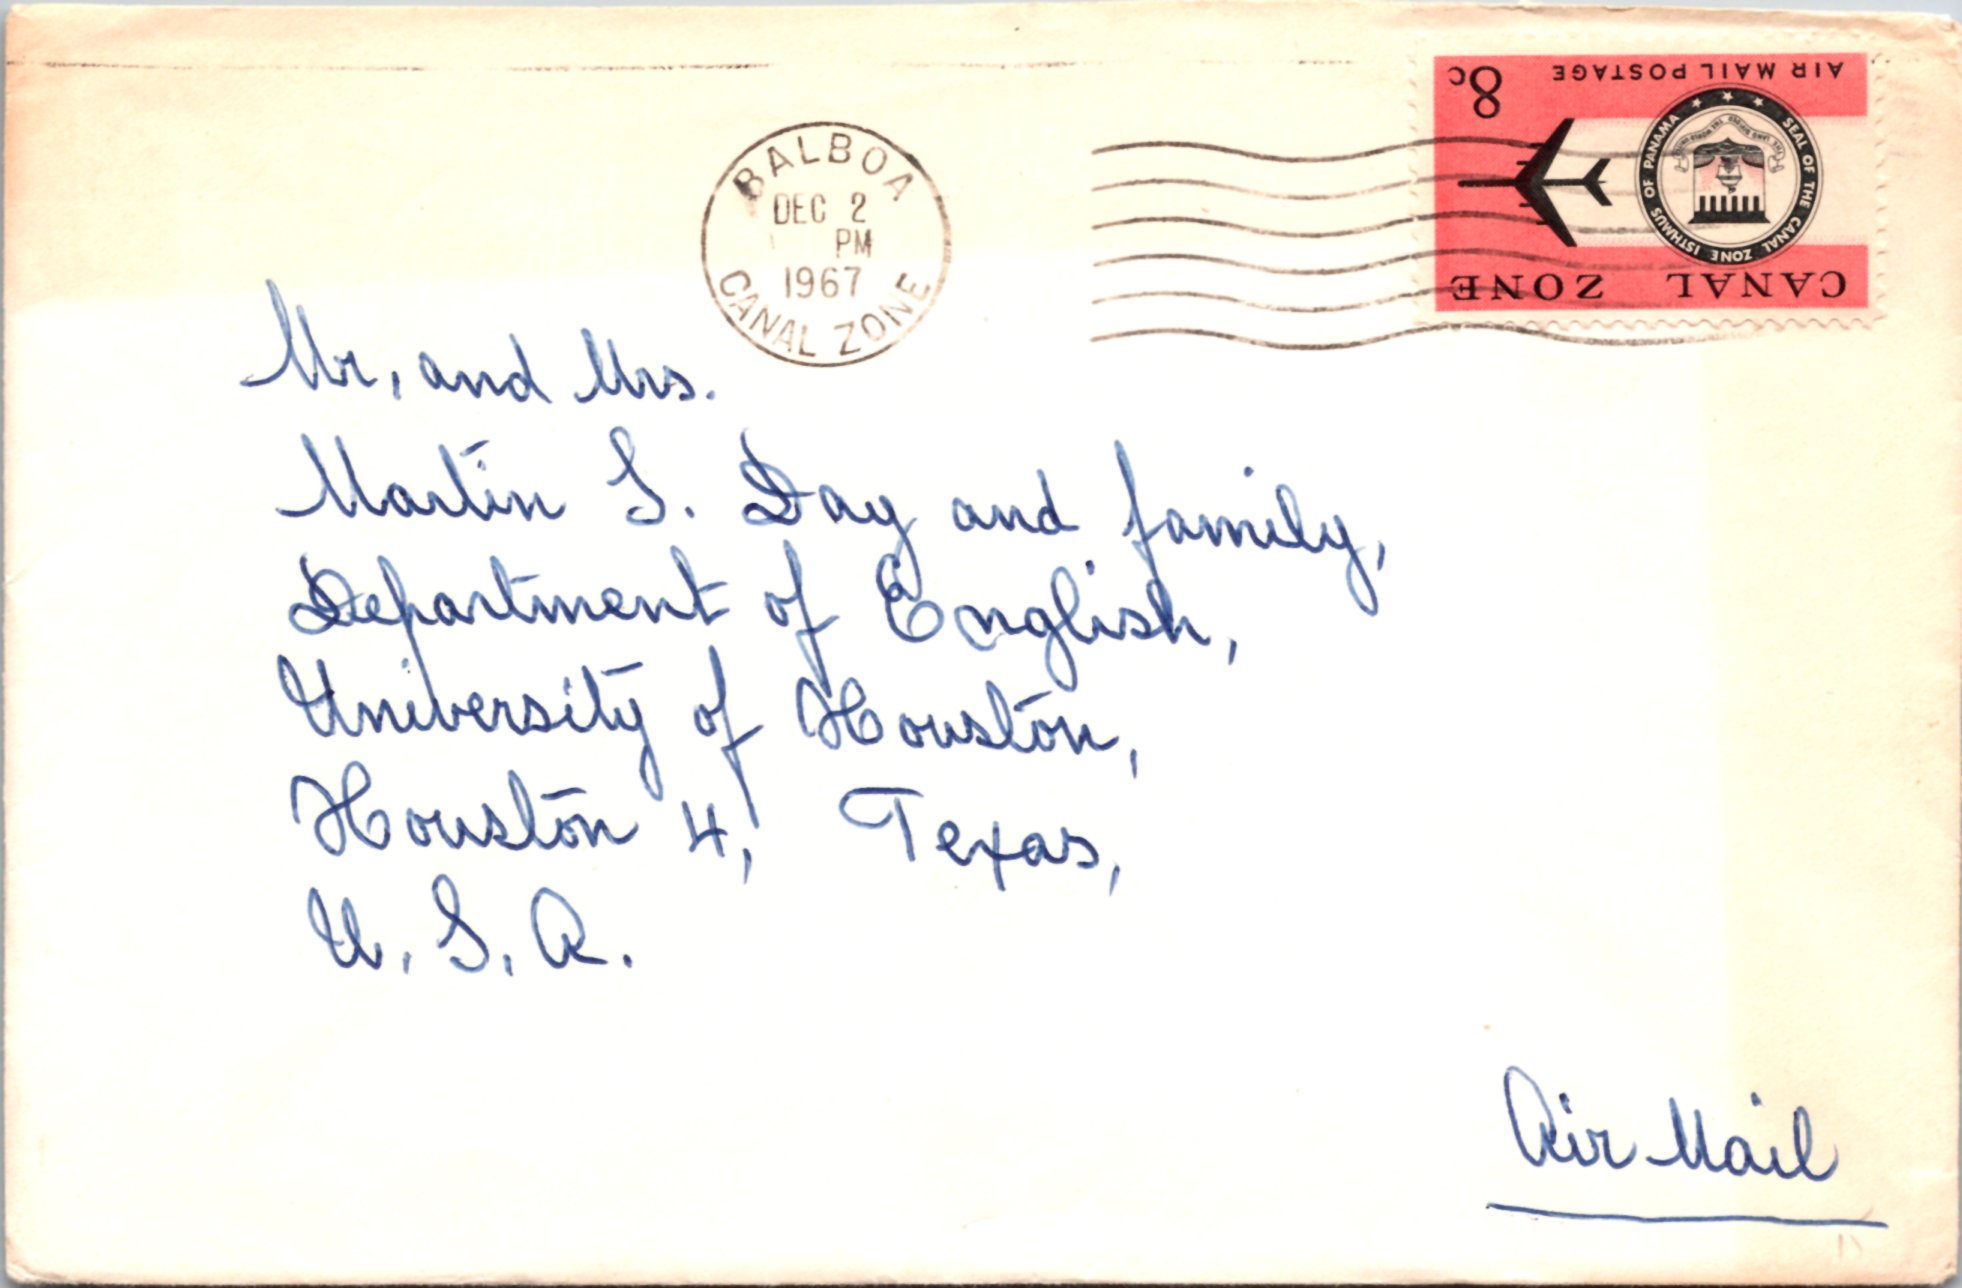 BALBOA
DEC 2
PM
1967
CANAL ZONE
8c
AIR MAIL POSTAGE
SEAL OF THE CANAL ZONE ISTHMUS OF PANAMA
CANAL ZONE
Mr. and Mrs.
Martin S. Day and family,
Department of English,
University of Houston,
Houston 4, Texas,
U. S. A.
Air Mail